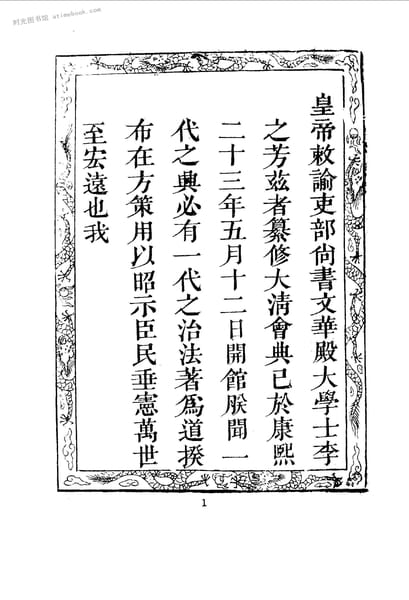 时光图书馆 atimebook.com
皇帝敕諭吏部尚書文華殿大學士李
之芳茲者纂修大淸會典已於康熙
二十三年五月十二日開館朕聞一
代之興必有一代之治法著爲道揆
布在方策用以昭示臣民垂憲萬世
至宏遠也我
1